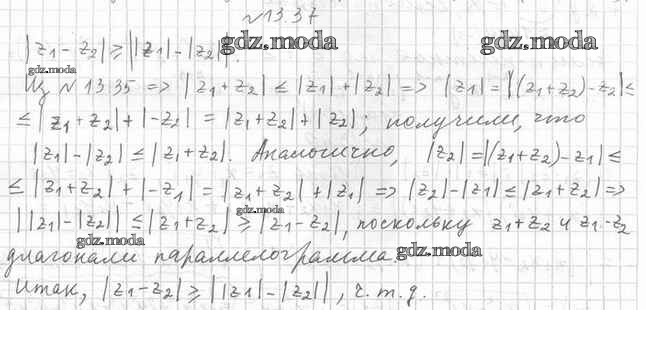 №13.37
|z₁ - z₂| ≥ ||z₁| - |z₂||. gdz.moda gdz.moda
gdz.moda
Из №13.35 => |z₁+z₂| ≤ |z₁|+|z₂| => |z₁| = |(z₁+z₂)-z₂| ≤
≤ |z₁+z₂| + |-z₂| = |z₁+z₂| + |z₂|; получили, что
|z₁| - |z₂| ≤ |z₁+z₂|. Аналогично, |z₂| = |(z₁+z₂)-z₁| ≤
≤ |z₁+z₂| + |-z₁| = |z₁+z₂| + |z₁| => |z₂| - |z₁| ≤ |z₁+z₂| =>
gdz.moda
||z₁| - |z₂|| ≤ |z₁+z₂| ≥ |z₁-z₂|, поскольку z₁+z₂ и z₁-z₂
gdz.moda gdz.moda
диагонали параллелограмма.
Итак, |z₁-z₂| ≥ ||z₁| - |z₂||, ч.т.д.